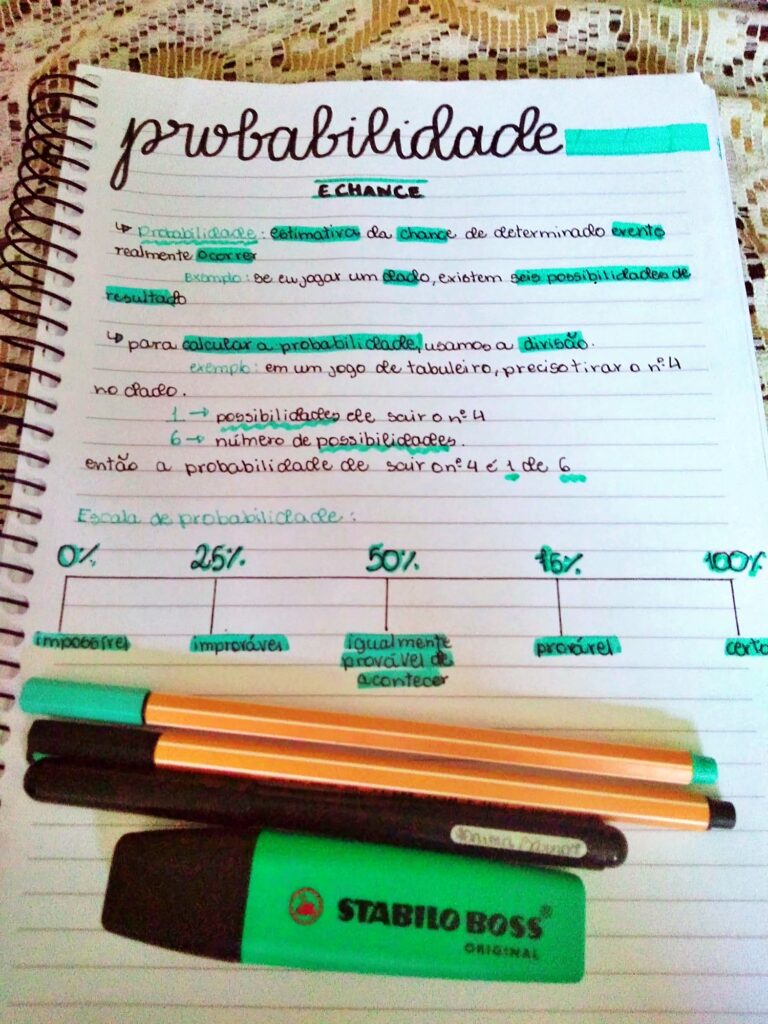 probabilidade
E CHANCE
↳ probabilidade: estimativa da chance de determinado evento
realmente ocorrer
Exemplo: se eu jogar um dado, existem seis possibilidades de
resultado
↳ para calcular a probabilidade, usamos a divisão.
exemplo: em um jogo de tabuleiro, preciso tirar o nº 4
no dado.
1 → possibilidades de sair o nº 4
6 → número de possibilidades.
então a probabilidade de sair o nº 4 é 1 de 6
Escala de probabilidade:
0% 25% 50% 75% 100%
impossível improvável igualmente provável certo
provável de
acontecer
STABILO BOSS®
ORIGINAL